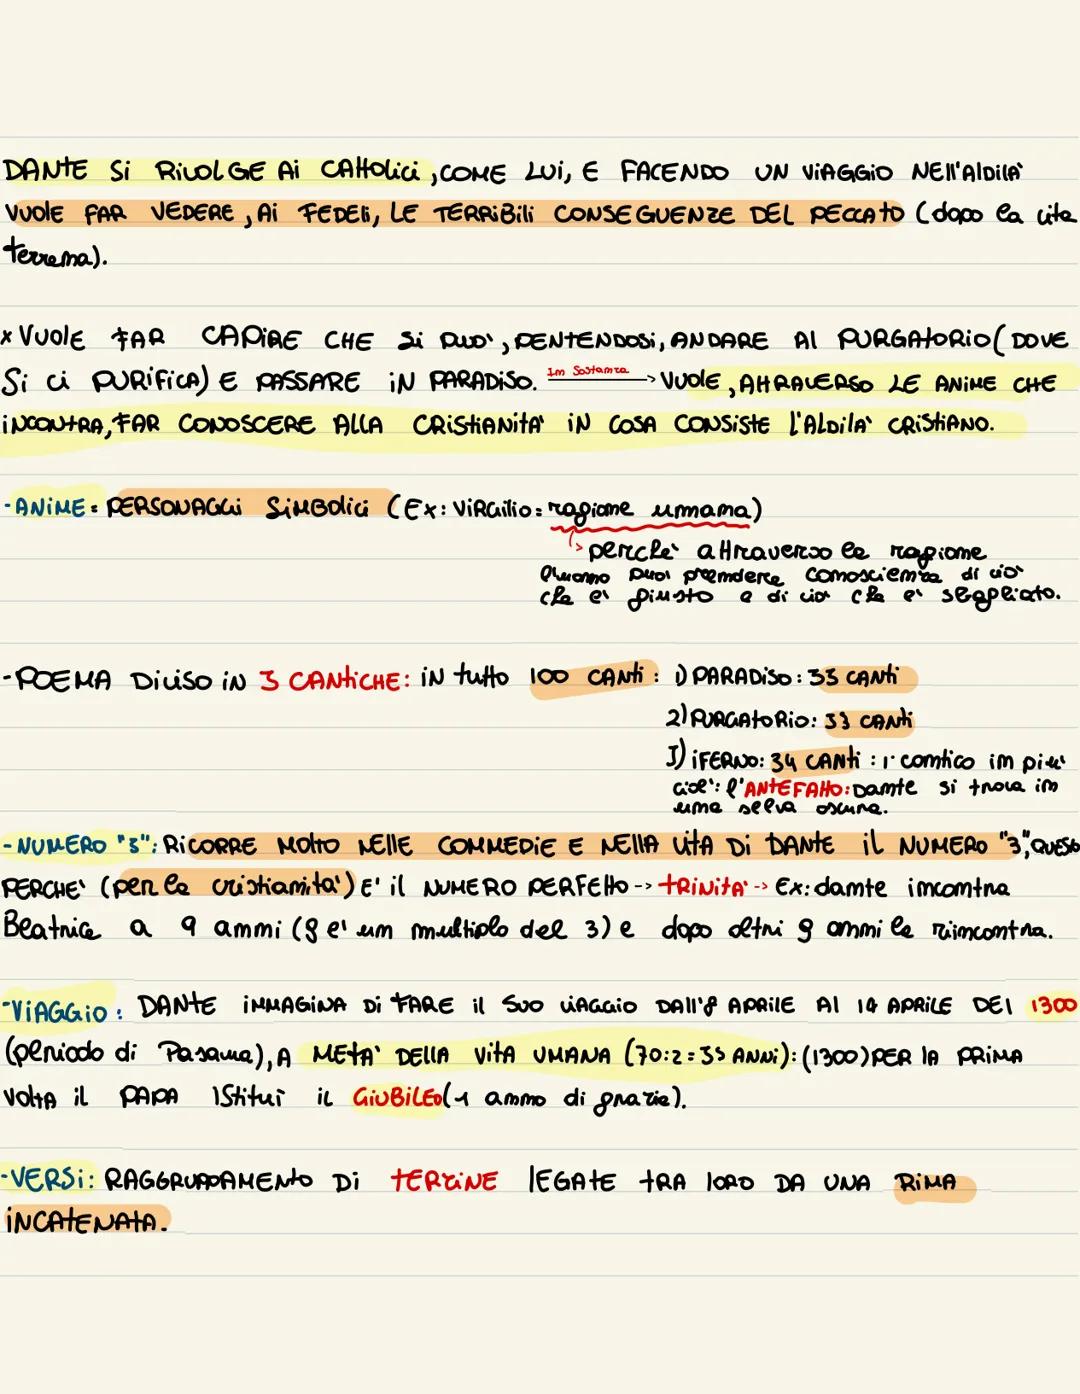 DANTE SI RIVOLGE AI CATTOLICI, COME LUI, E FACENDO UN VIAGGIO NELL'ALDILA'
VUOLE FAR VEDERE, AI FEDELI, LE TERRIBILI CONSEGUENZE DEL PECCATO (dopo la vita
terrena).
x VUOLE FAR CAPIRE CHE SI PUO', PENTENDOSI, ANDARE AL PURGATORIO (DOVE
SI CI PURIFICA) E PASSARE IN PARADISO. In Sostanza -> VUOLE, ATTRAVERSO LE ANIME CHE
INCONTRA, FAR CONOSCERE ALLA CRISTIANITA' IN COSA CONSISTE L'ALDILA' CRISTIANO.
- ANIME = PERSONAGGI SIMBOLICI (EX: VIRGILIO = ragione umana)
-> perche' attraverso la ragione
l'uomo puoi prendere conoscienza di cio'
che e' giusto e di cio' che e' sbagliato.
- POEMA DIVISO IN 3 CANTICHE: IN tutto 100 CANTI: 1) PARADISO: 33 CANTI
2) PURGATORIO: 33 CANTI
3) IFERNO: 34 CANTI: 1 cantico in piu'
cioe': l'ANTEFATTO: Dante si trova in
una selva oscura.
- NUMERO "3": RICORRE MOLTO NELLE COMMEDIE E NELLA VITA DI DANTE IL NUMERO "3", QUESTO
PERCHE' (per la cristianita') E' IL NUMERO PERFETTO -> TRINITA' -> EX: dante incontra
Beatrice a 9 anni (9 e' un multiplo del 3) e dopo altri 9 anni la rincontra.
- VIAGGIO: DANTE IMMAGINA DI FARE IL SUO VIAGGIO DALL'8 APRILE AL 14 APRILE DEL 1300
(periodo di Pasqua), A META' DELLA VITA UMANA (70:2=35 ANNI): (1300) PER LA PRIMA
VOLTA IL PAPA ISTITUI' IL GIUBILEO (1 anno di grazie).
- VERSI: RAGGRUPPAMENTO DI TERZINE LEGATE TRA LORO DA UNA RIMA
INCATENATA.